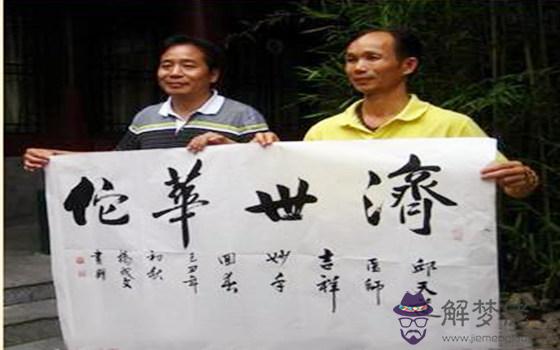 濟世華佗
邱天
医師
吉祥
妙手
回春
己丑年
初秋
書
解梦